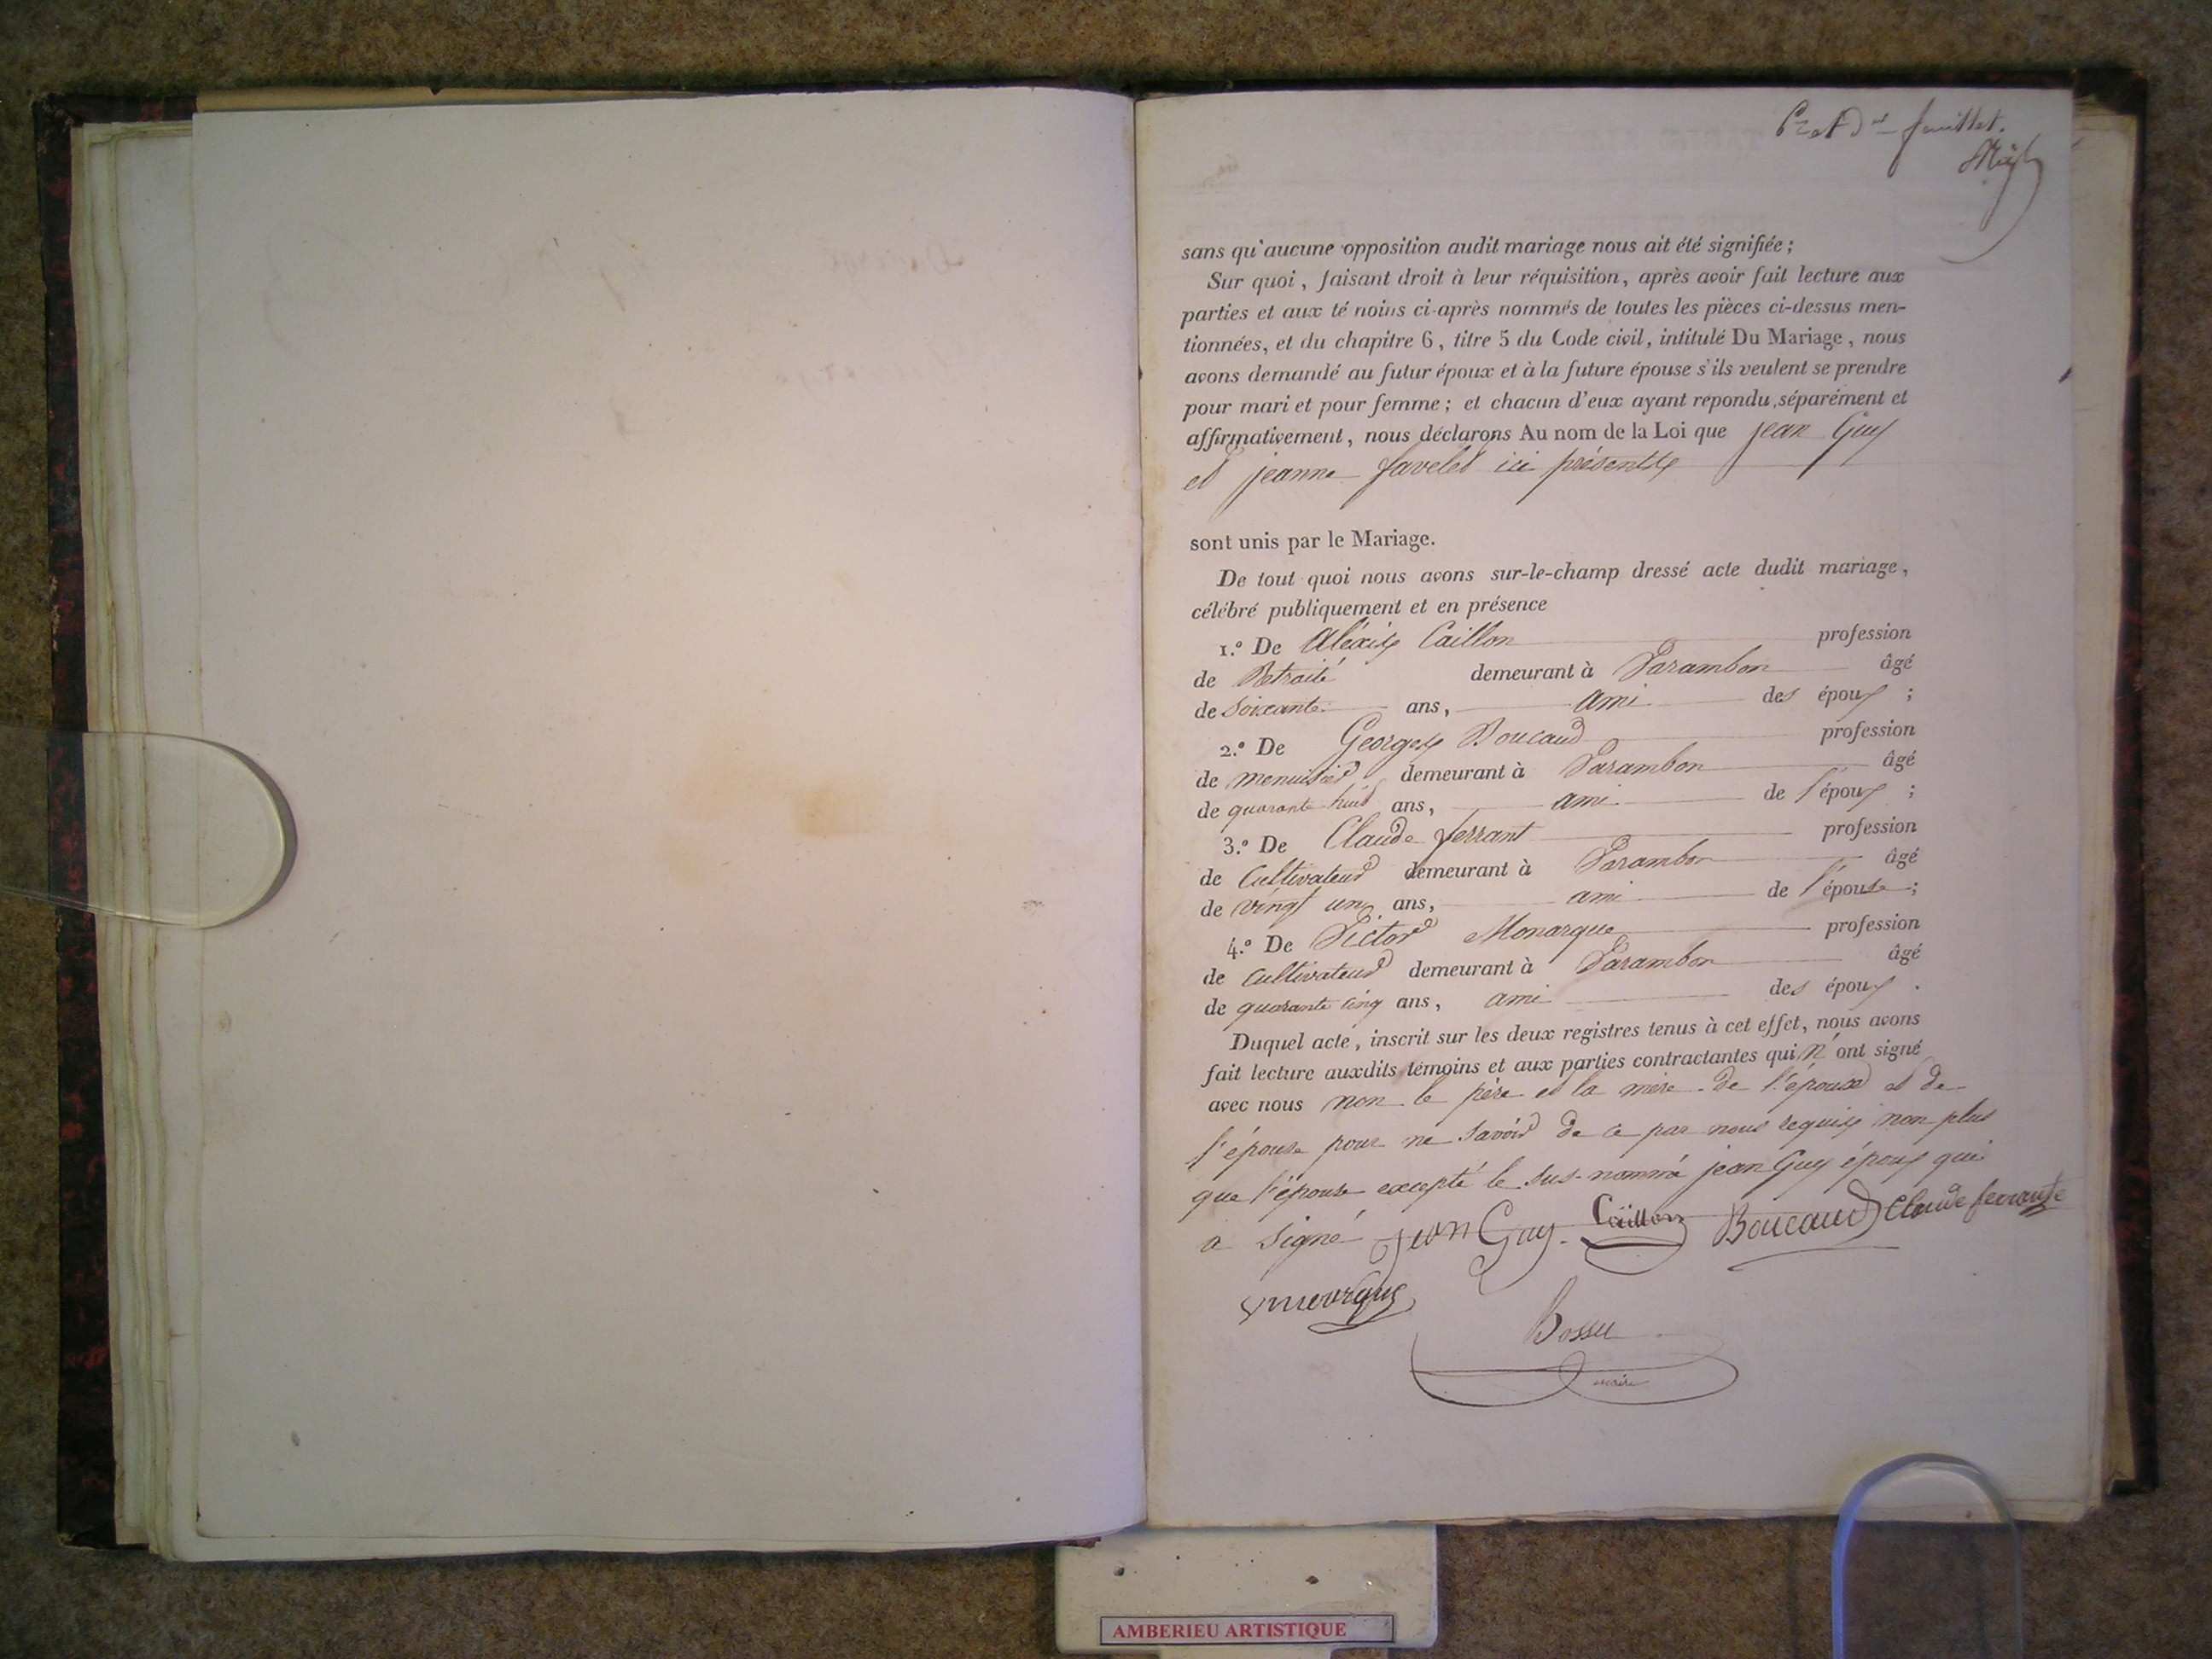 feuillet.
sans qu'aucune opposition audit mariage nous ait été signifiée ;
Sur quoi, faisant droit à leur réquisition, après avoir fait lecture aux
parties et aux té noins ci-après nommés de toutes les pièces ci-dessus men-
tionnées, et du chapitre 6, titre 5 du Code civil, intitulé Du Mariage, nous
avons demandé au futur époux et à la future épouse s'ils veulent se prendre
pour mari et pour femme ; et chacun d'eux ayant repondu séparément et
affirmativement, nous déclarons Au nom de la Loi que jean Guy
et jeanne favelet ici présents
sont unis par le Mariage.
De tout quoi nous avons sur-le-champ dressé acte dudit mariage,
célébré publiquement et en présence
1.º De Alexis Caillon profession
de Retraité demeurant à Parambon âgé
de Soixante ans, ami des époux ;
2.º De Georges Boucaud profession
de menuisier demeurant à Parambon âgé
de quarante huit ans, ami de l'époux ;
3.º De Claude ferrant profession
de Cultivateur demeurant à Parambon âgé
de vingt un ans, ami de l'épouse ;
4.º De Victor Monarque profession
de Cultivateur demeurant à Parambon âgé
de quarante cinq ans, ami des époux .
Duquel acte, inscrit sur les deux registres tenus à cet effet, nous avons
fait lecture auxdits témoins et aux parties contractantes qui n'ont signé
avec nous non le père et la mère de l'époux et de
l'épouse pour ne savoir de ce par nous requis non plus
que l'épouse excepté le sus-nommé jean Guy époux qui
a signé jean Guy Caillon Boucaud Claude ferrant
Bossu
maire
AMBERIEU ARTISTIQUE